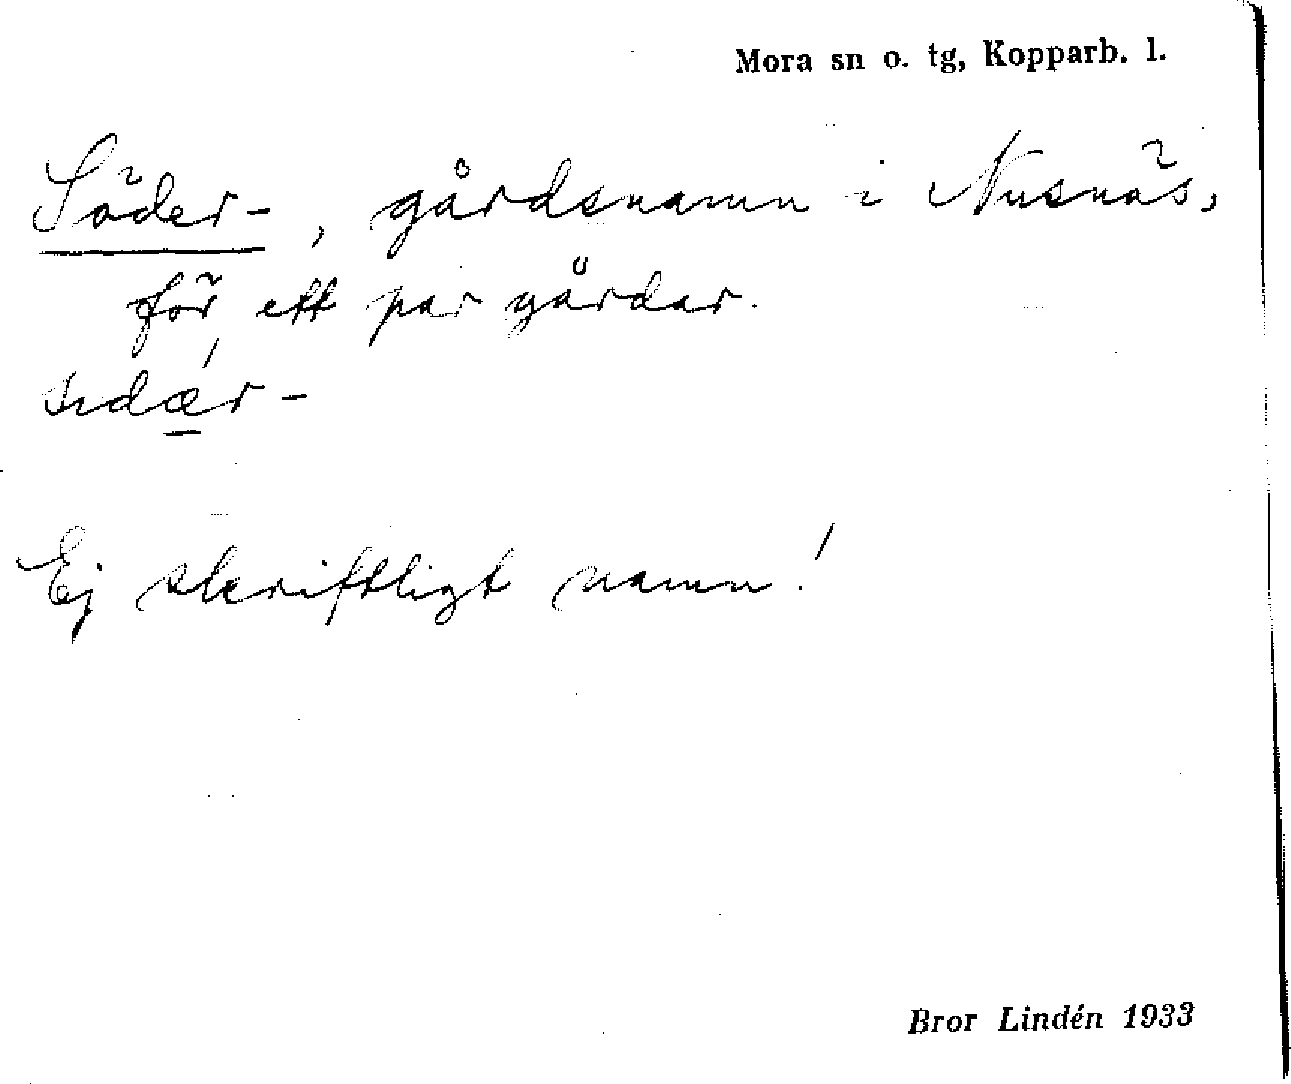 Mora sn o. tg, Kopparb. l.
Söder-, gårdsnamn i Nusnäs,
för ett par gårdar.
sudǽr-
Ej skriftligt namn!
Bror Lindén 1933